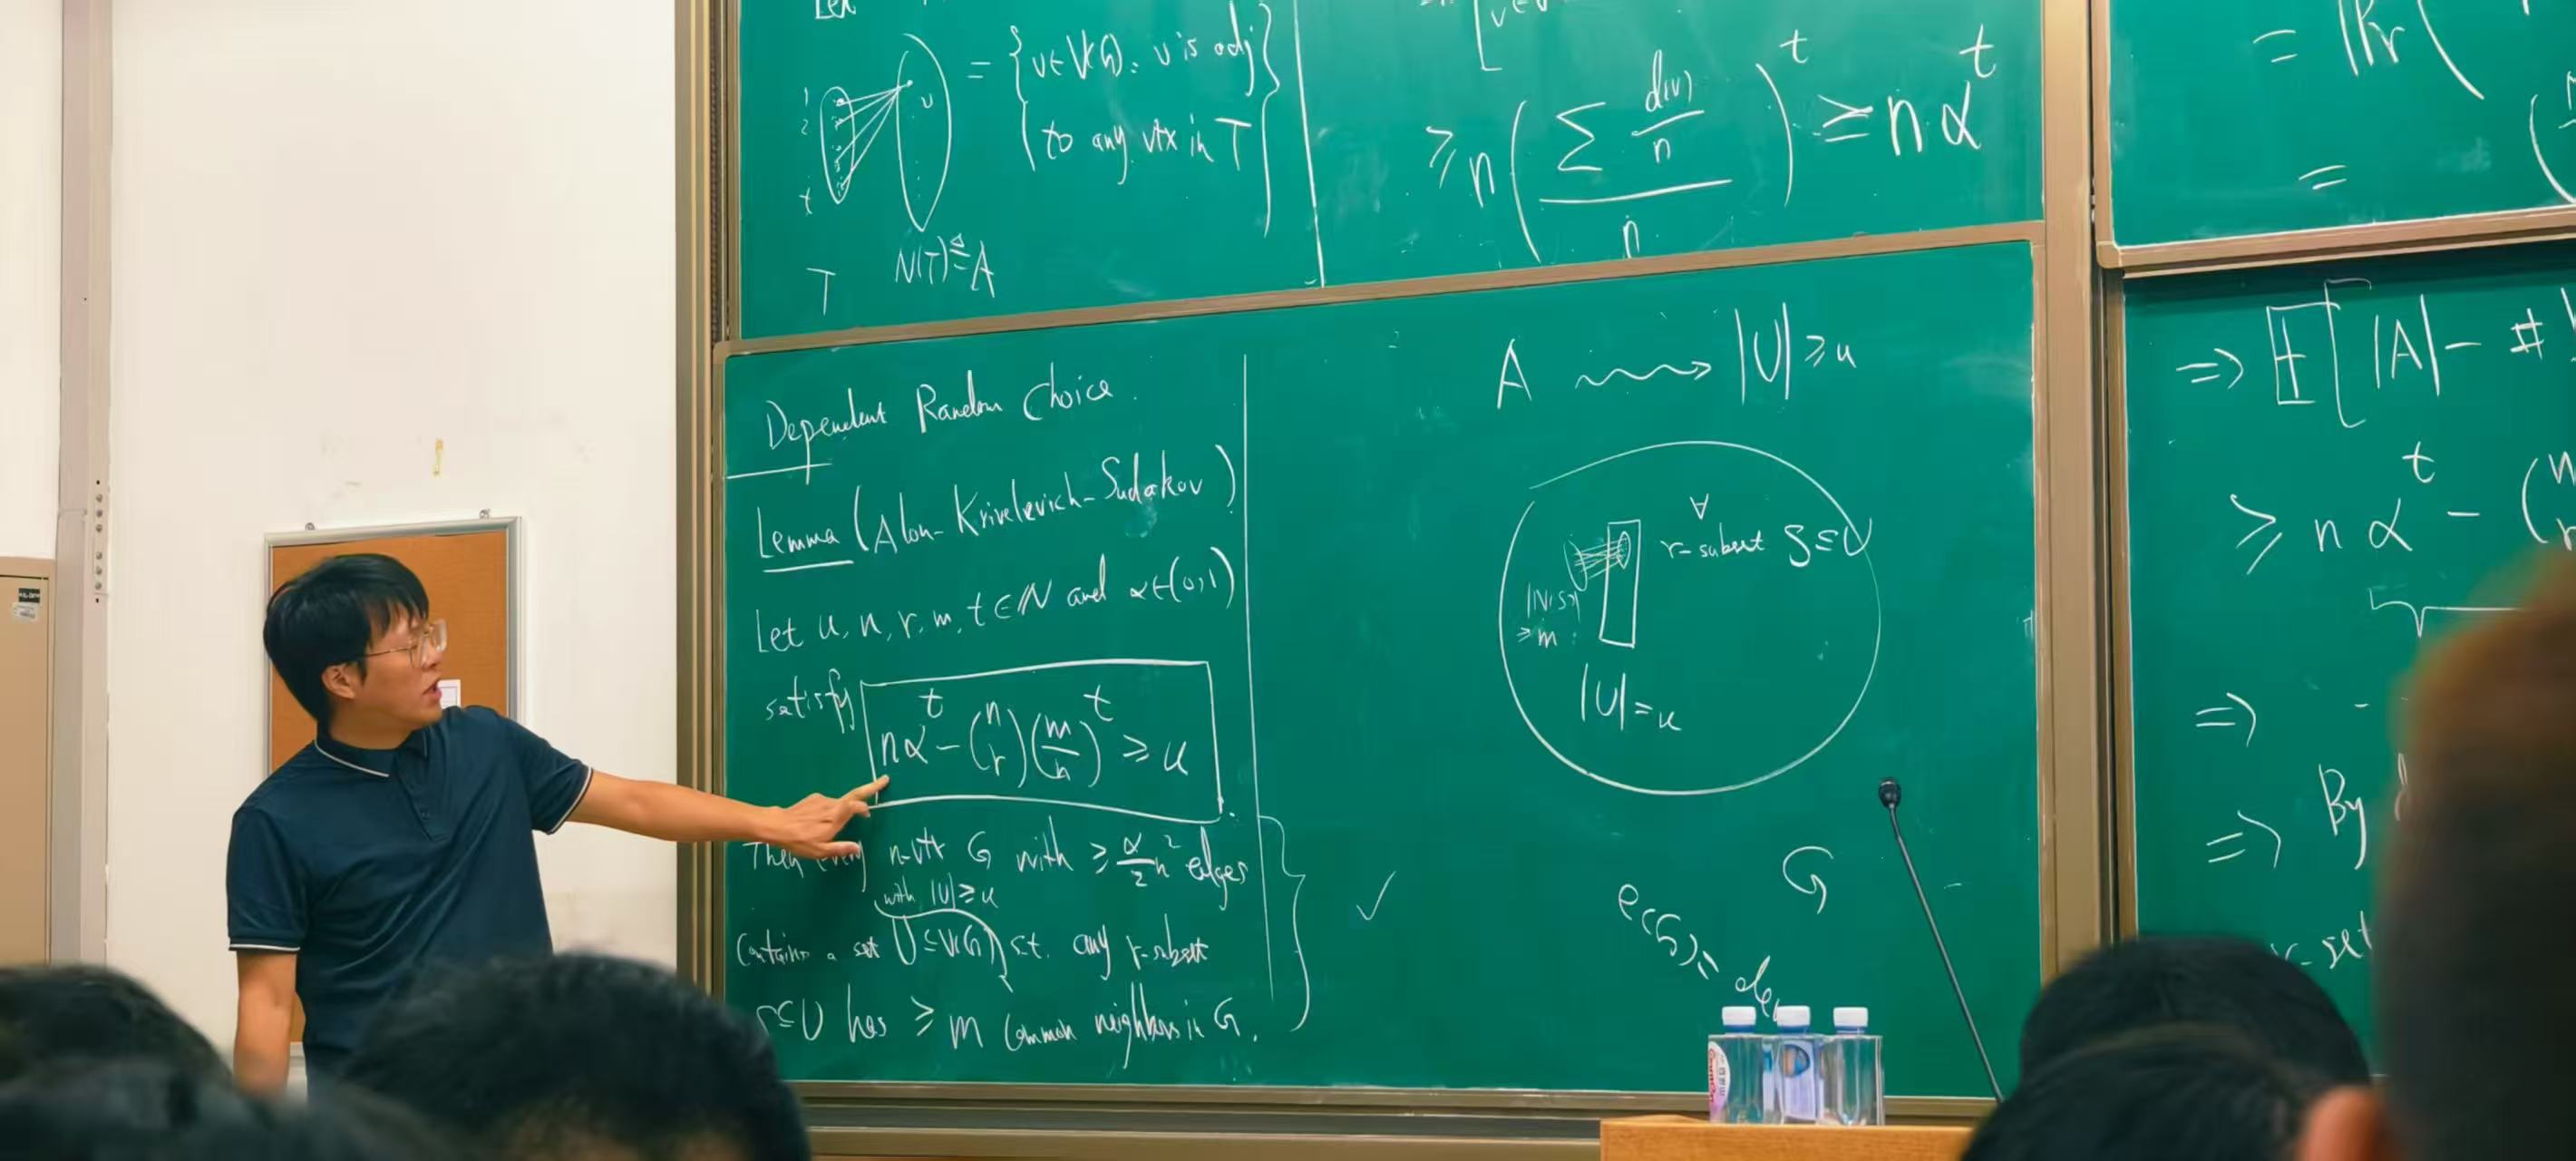 Let
= { v∈V(G): v is adj
to any vtx in T }
1
2
t
v
T
N(T) ≜ A
[v∈V
≥ n ( ∑ d(v)/n / n )^t ≥ n α^t
= Pr (
=
Dependent Random Choice.
Lemma (Alon-Krivelevich-Sudakov)
Let u, n, r, m, t ∈ N and α∈(0,1)
satisfy nα^t - (n r)(m/n)^t ≥ u.
Then every n-vtx G with ≥ α/2 n^2 edges
with |U|≥u
contains a set U⊆V(G) s.t. any r-subset
S⊆U has ≥ m common neighbors in G.
✓
A ⇝ |U| ≥ u
∀
r-subset S⊆U
|N(S)|
≥ m
|U|=u
G
e(G) =
⇒ E[|A| - #
≥ n α^t - (n r
⇒ -
⇒ By
r-set